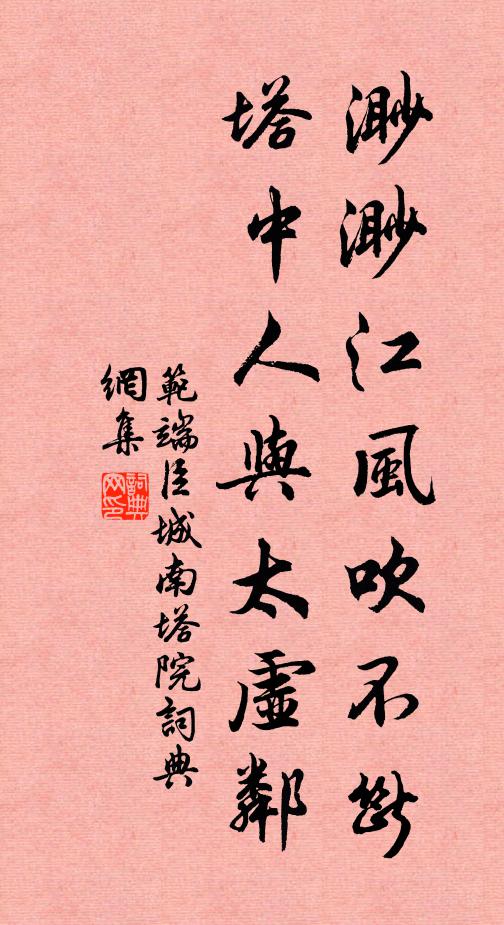 渺渺江風吹不斷
塔中人與太虛鄰
範端臣城南塔院詞典
網集
詞典
网印